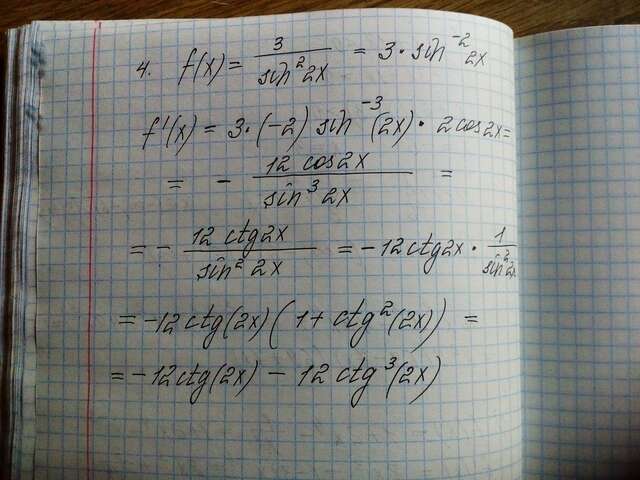 4. f(x) = 3/sin²2x = 3·sin⁻²2x
f'(x) = 3·(-2) sin⁻³(2x)·2cos2x =
= - 12 cos2x/sin³2x =
= - 12 ctg2x/sin²2x = -12ctg2x·1/sin²2x
= -12ctg(2x)(1+ctg²(2x)) =
= -12ctg(2x) - 12ctg³(2x)